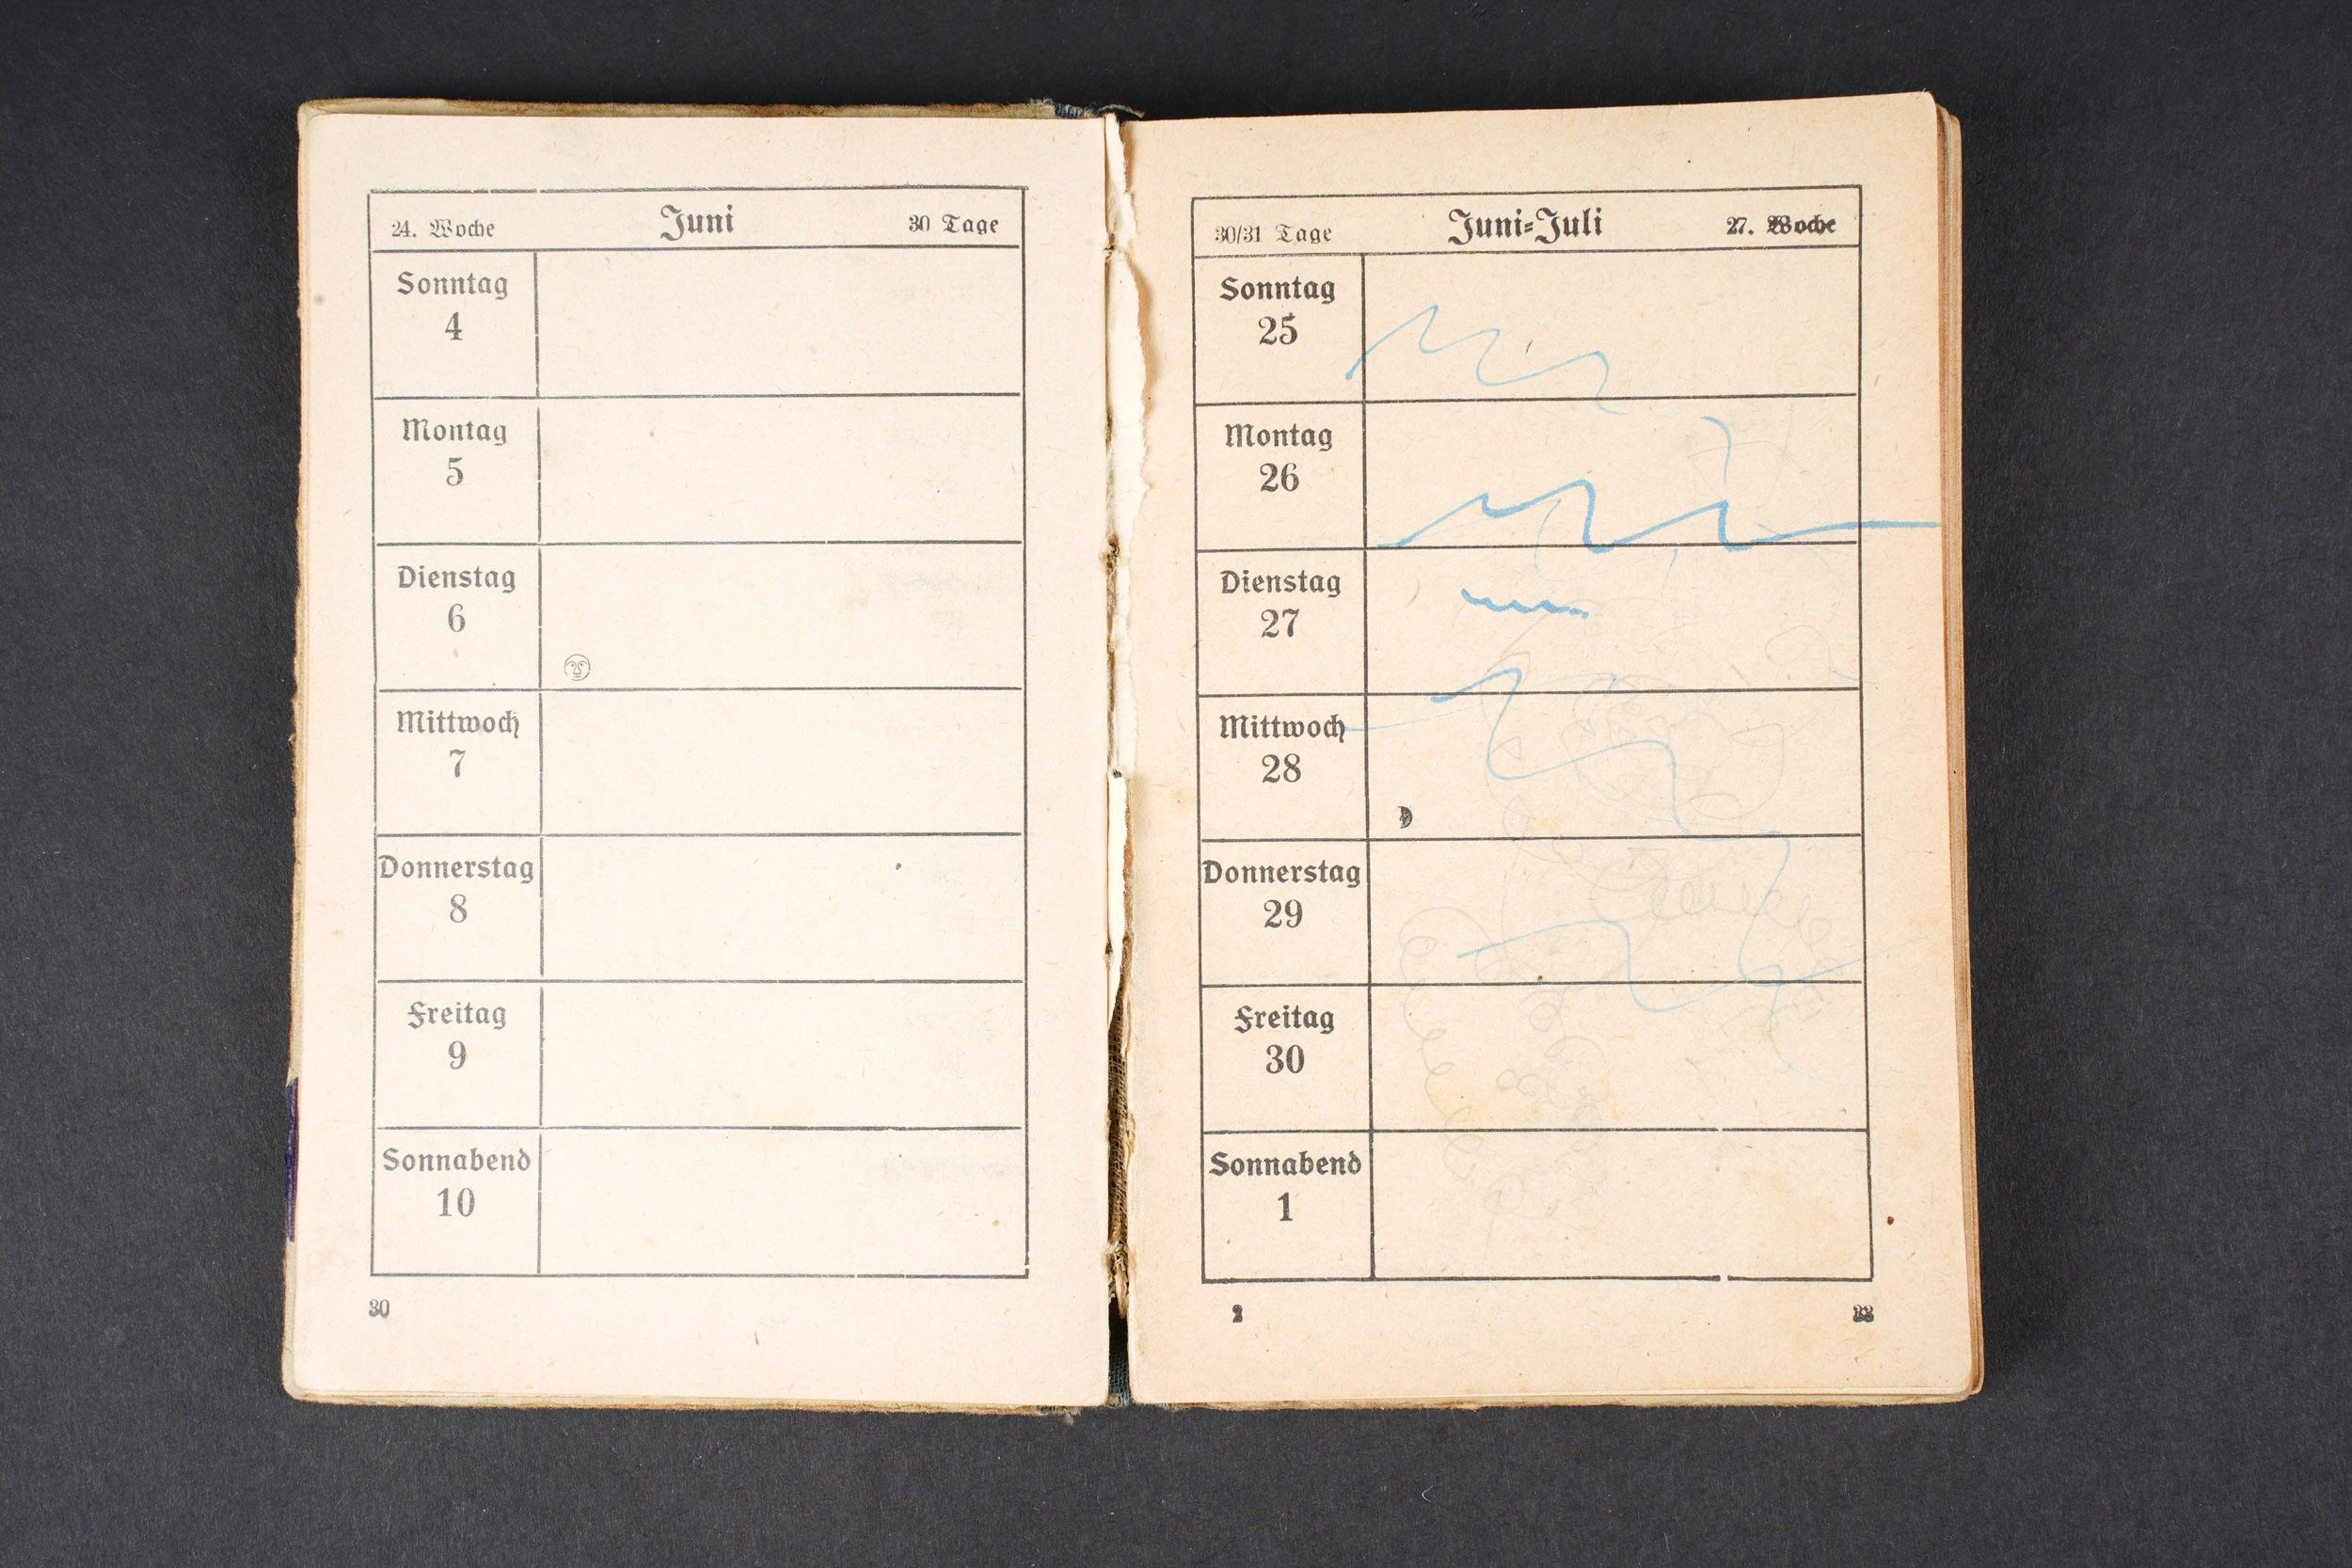 24. Woche Juni 30 Tage
Sonntag
4
Montag
5
Dienstag
6
Mittwoch
7
Donnerstag
8
Freitag
9
Sonnabend
10
30
30/31 Tage Juni=Juli 27. Woche
Sonntag
25
Montag
26
Dienstag
27
Mittwoch
28
Donnerstag
29
Freitag
30
Sonnabend
1